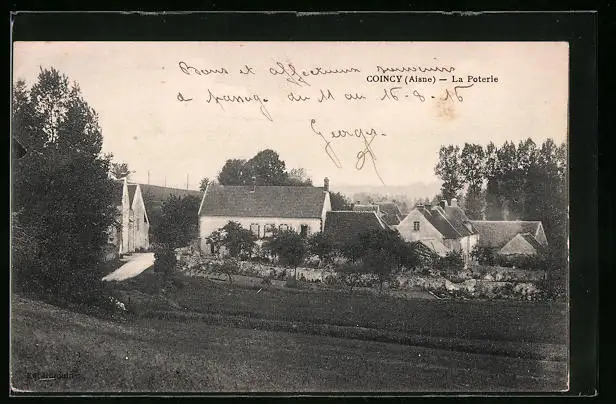 Bons et affectueux souvenirs
COINCY (Aisne) — La Poterie
de passage du 11 au 16-8-15
Georges